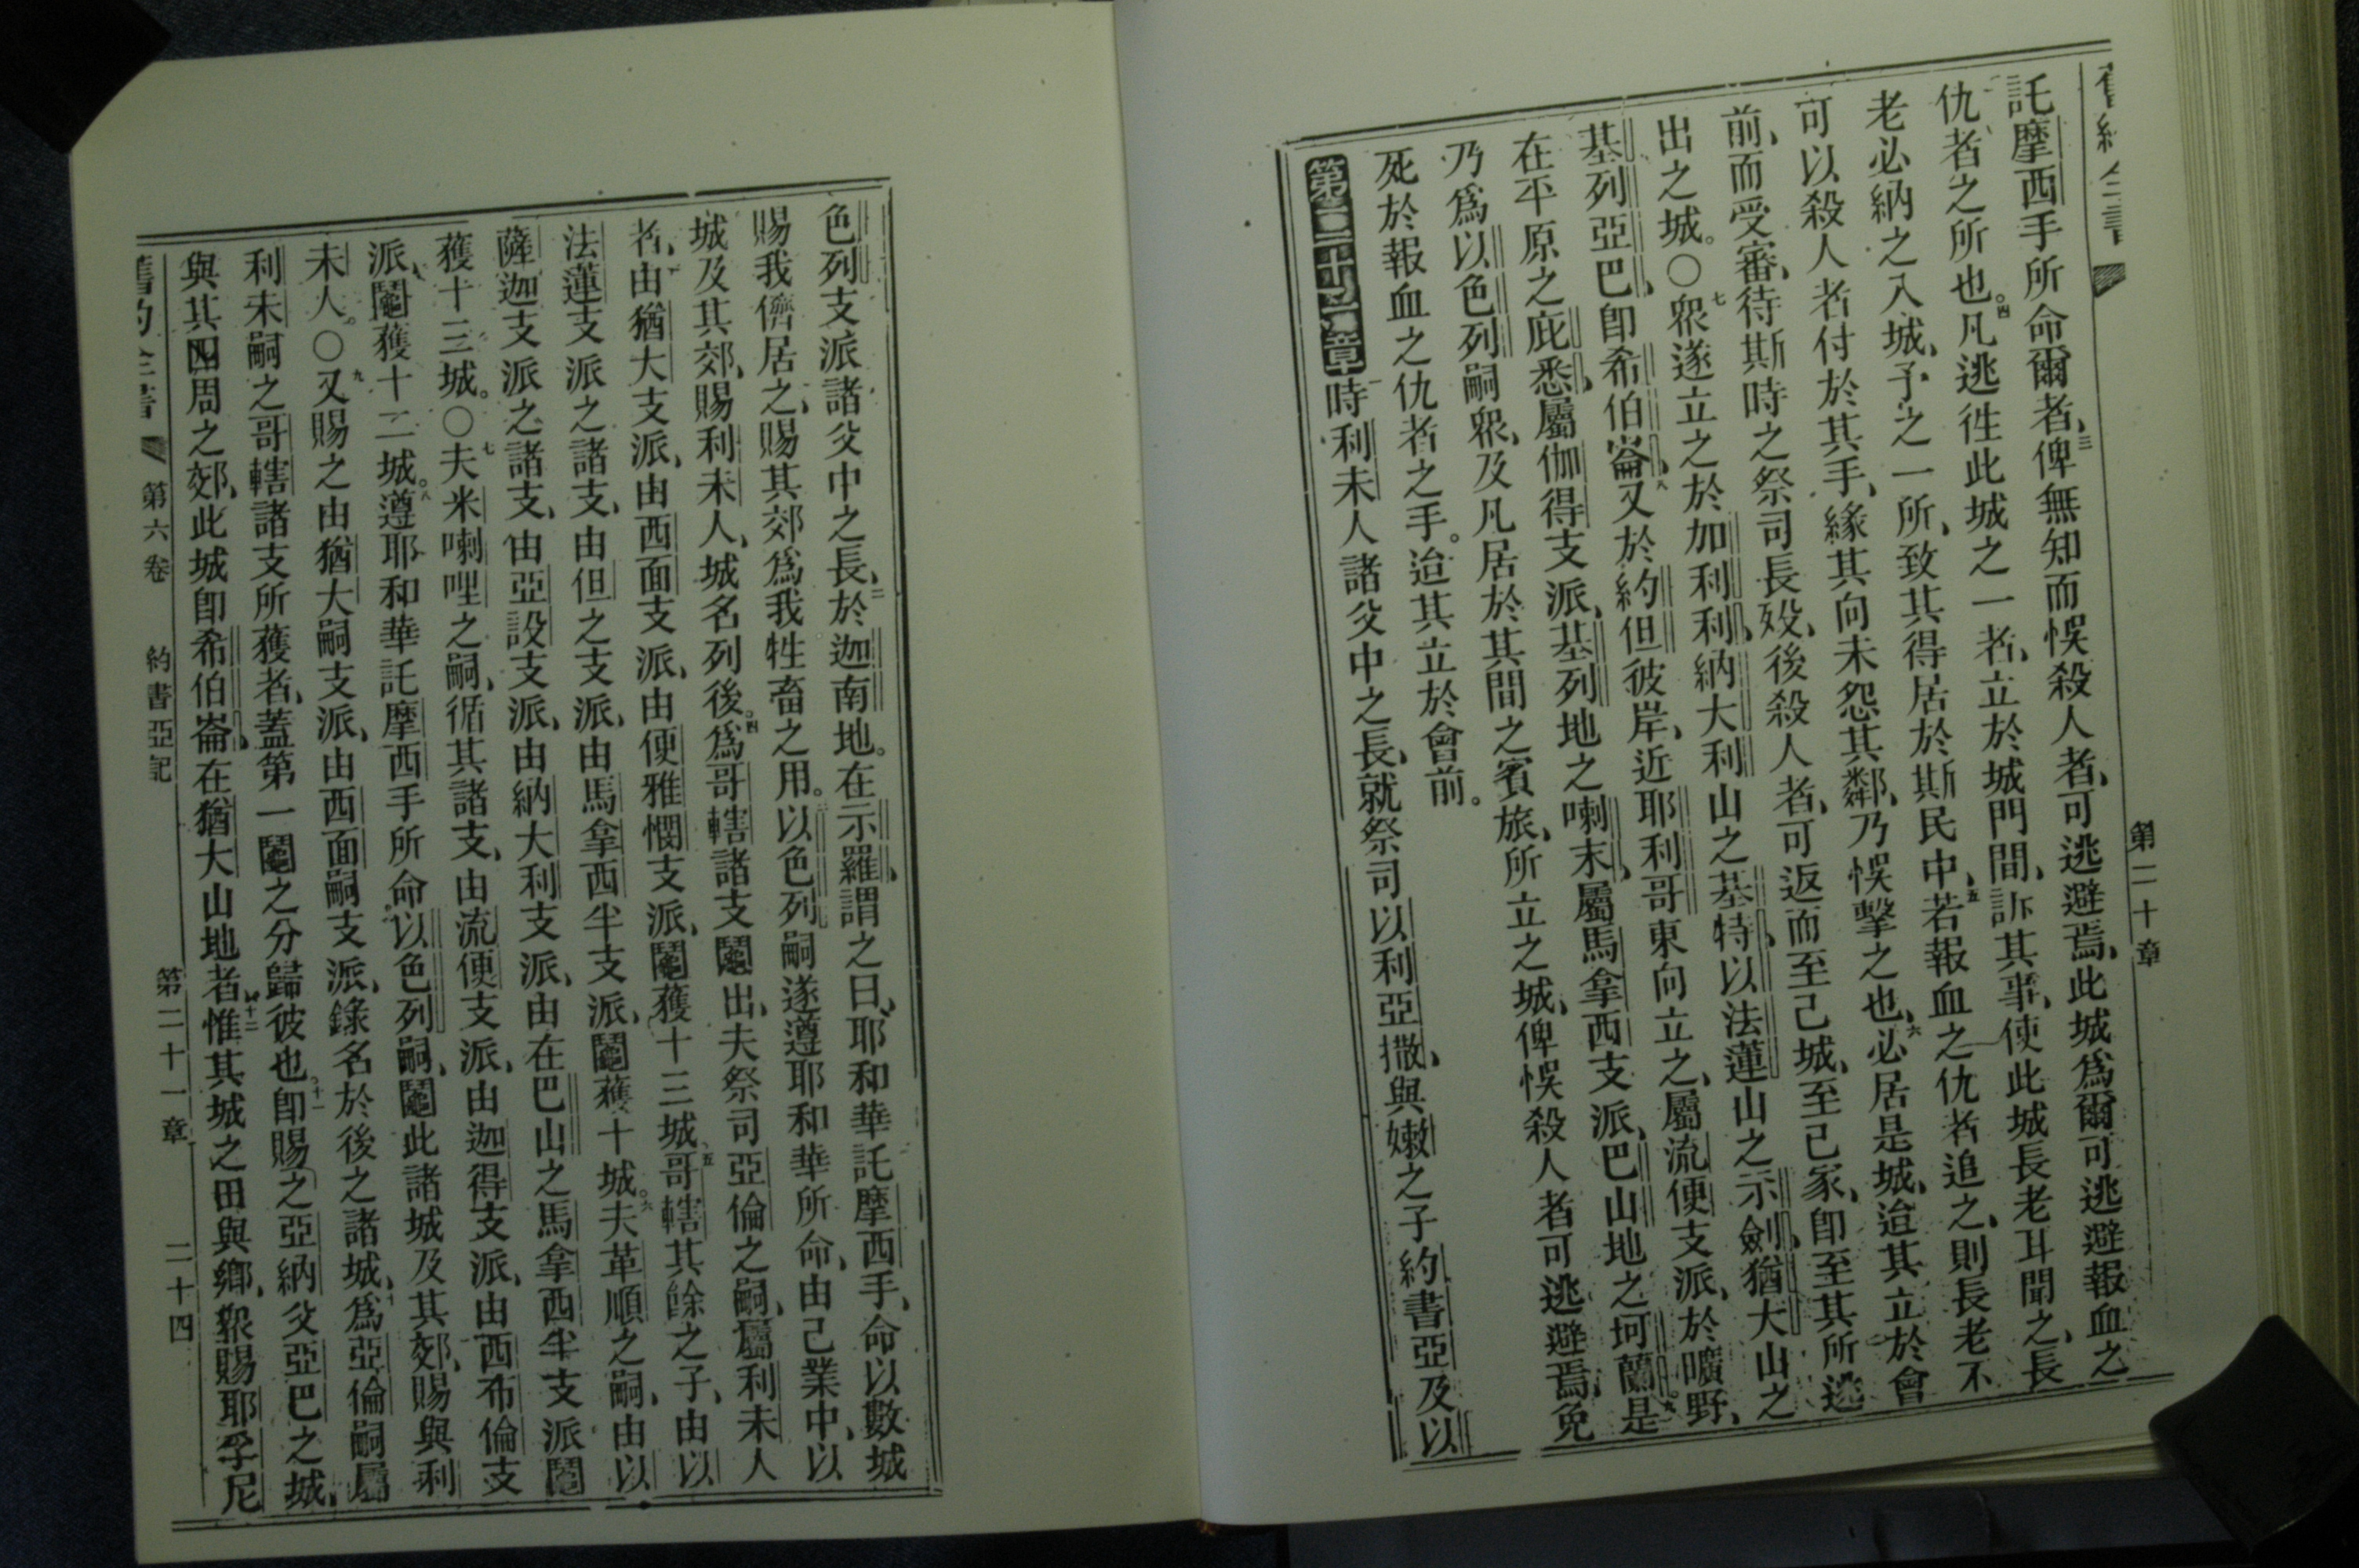 舊約全書
第二十章
託摩西手所命爾者、三俾無知而悞殺人者、可逃避焉、此城爲爾可逃避報血之
仇者之所也。四凡逃徃此城之一者、立於城門間、訴其事、使此城長老耳聞之、長
老必納之入城、予之一所、致其得居於斯民中、五若報血之仇者追之、則長老不
可以殺人者付於其手、緣其向未怨其鄰、乃悞擊之也、六必居是城、迨其立於會
前、而受審、待斯時之祭司長歿、後殺人者、可返而至己城、至己家、卽至其所逃
出之城。○七眾遂立之於加利利、納大利山之基特、以法蓮山之示劍、猶大山之
基列亞巴、卽希伯崙、八又於約但彼岸、近耶利哥東向立之、屬流便支派、於曠野、
在平原之庇悉、屬伽得支派、基列地之喇末、屬馬拿西支派、巴山地之坷蘭。九是
乃爲以色列嗣眾、及凡居於其間之賓旅、所立之城、俾悞殺人者可逃避焉、免
死於報血之仇者之手。迨其立於會前。
第二十一章 一時利未人諸父中之長、就祭司以利亞撒、與嫩之子約書亞及以
色列支派諸父中之長、二於迦南地。在示羅、謂之曰、耶和華託摩西手、命以數城
賜我儕居之、賜其郊爲我牲畜之用。三以色列嗣遂遵耶和華所命、由己業中、以
城及其郊、賜利未人、城名列後。四爲哥轄諸支鬮出、夫祭司亞倫之嗣、屬利未人
者、由猶大支派、由西面支派、由便雅憫支派、鬮獲十三城、五哥轄其餘之子、由以
法蓮支派之諸支、由但之支派、由馬拿西半支派、鬮獲十城。六夫革順之嗣、由以
薩迦支派之諸支、由亞設支派、由納大利支派、由在巴山之馬拿西半支派鬮
獲十三城。○七夫米喇哩之嗣、循其諸支、由流便支派、由迦得支派、由西布倫支
派、鬮獲十二城。八遵耶和華託摩西手所命、以色列嗣、鬮此諸城及其郊、賜與利
未人。○九又賜之由猶大嗣支派、由西面嗣支派、錄名於後之諸城、十爲亞倫嗣屬
利未嗣之哥轄諸支所獲者、蓋第一鬮之分歸彼也。十一卽賜之亞納父亞巴之城、
與其四周之郊、此城卽希伯崙、在猶大山地者、十二惟其城之田與鄉、眾賜耶孚尼
舊約全書 第六卷 約書亞記 第二十一章 二十四